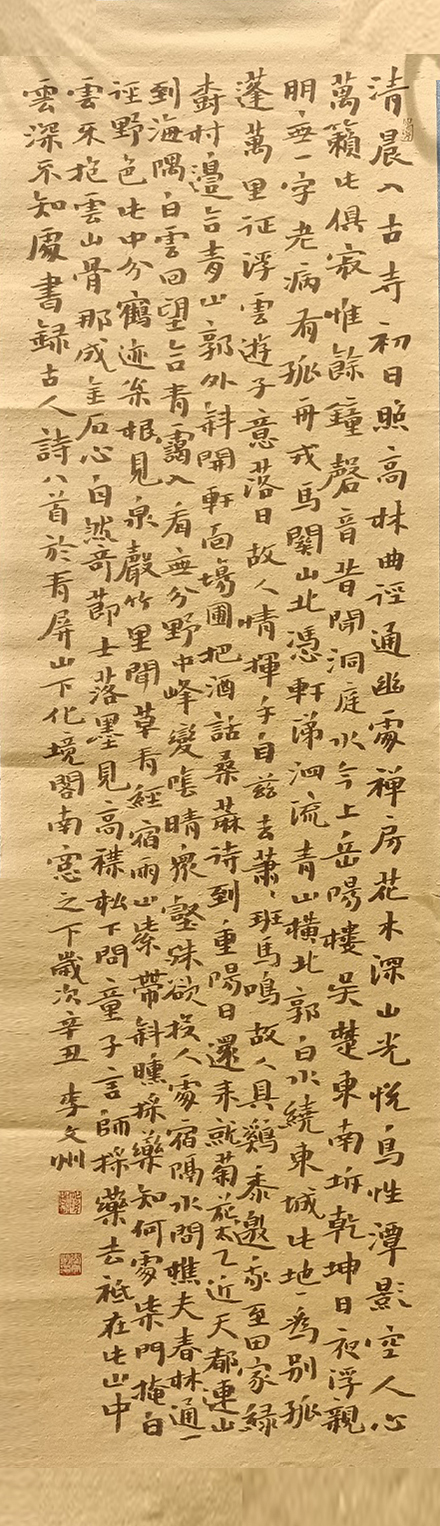 清晨入古寺初日照高林曲徑通幽處禪房花木深山光悅鳥性潭影空人心
萬籟此俱寂惟餘鐘磬音昔聞洞庭水今上岳陽樓吳楚東南坼乾坤日夜浮親
朋無一字老病有孤舟戎馬關山北憑軒涕泗流青山橫北郭白水繞東城此地一為別孤
蓬萬里征浮雲遊子意落日故人情揮手自茲去蕭〻班馬鳴故人具鷄黍邀我至田家綠
樹村邊合青山郭外斜開軒面場圃把酒話桑麻待到重陽日還來就菊花太乙近天都連山
到海隅白雲回望合青靄入看無分野中峰變陰晴眾壑殊欲投人處宿隔水問樵夫春林通一
徑野色此中分鶴迹尋根見泉聲竹里聞草青經宿雨山紫帶斜曛採藥知何處柴門掩白
雲不抱雲山骨那成金石心自然奇節士落墨見高襟松下問童子言師採藥去祗在此山中
雲深不知處書錄古人詩八首於青屏山下化境閣南窗之下歲次辛丑 李文州